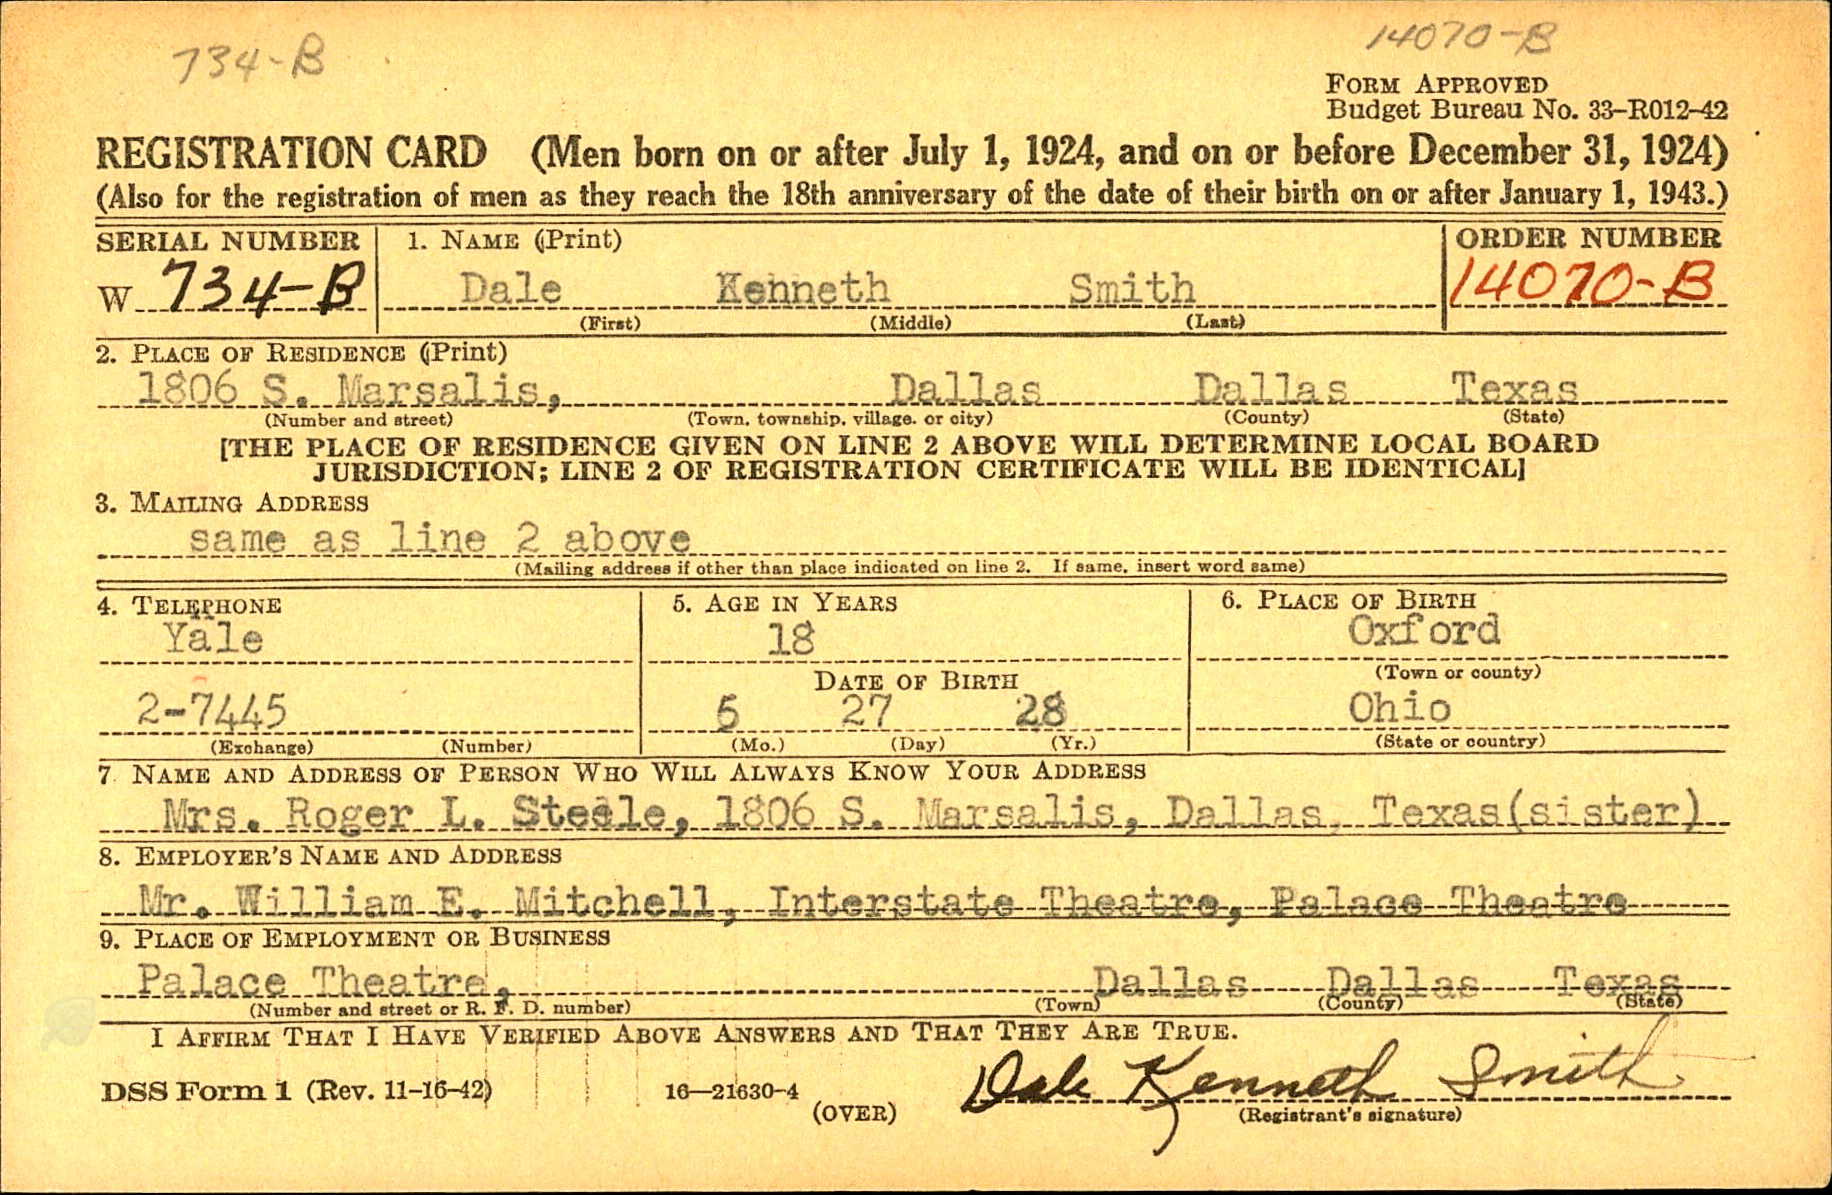 734-B
14070-B
FORM APPROVED
Budget Bureau No. 33-R012-42
REGISTRATION CARD (Men born on or after July 1, 1924, and on or before December 31, 1924)
(Also for the registration of men as they reach the 18th anniversary of the date of their birth on or after January 1, 1943.)
SERIAL NUMBER 1. NAME (Print) ORDER NUMBER
W 734-B Dale Kenneth Smith 14070-B
(First) (Middle) (Last)
2. PLACE OF RESIDENCE (Print)
1806 S. Marsalis, Dallas Dallas Texas
(Number and street) (Town, township, village, or city) (County) (State)
[THE PLACE OF RESIDENCE GIVEN ON LINE 2 ABOVE WILL DETERMINE LOCAL BOARD
JURISDICTION; LINE 2 OF REGISTRATION CERTIFICATE WILL BE IDENTICAL]
3. MAILING ADDRESS
same as line 2 above
(Mailing address if other than place indicated on line 2. If same, insert word same)
4. TELEPHONE 5. AGE IN YEARS 6. PLACE OF BIRTH
Yale 18 Oxford
(Town or county)
DATE OF BIRTH
2-7445 5 27 28 Ohio
(Exchange) (Number) (Mo.) (Day) (Yr.) (State or country)
7. NAME AND ADDRESS OF PERSON WHO WILL ALWAYS KNOW YOUR ADDRESS
Mrs. Roger L. Steele, 1806 S. Marsalis, Dallas, Texas(sister)
8. EMPLOYER'S NAME AND ADDRESS
Mr. William E. Mitchell, Interstate Theatre, Palace Theatre
9. PLACE OF EMPLOYMENT OR BUSINESS
Palace Theatre, Dallas Dallas Texas
(Number and street or R. F. D. number) (Town) (County) (State)
I AFFIRM THAT I HAVE VERIFIED ABOVE ANSWERS AND THAT THEY ARE TRUE.
DSS Form 1 (Rev. 11-16-42) 16—21630-4 (OVER) Dale Kenneth Smith
(Registrant's signature)